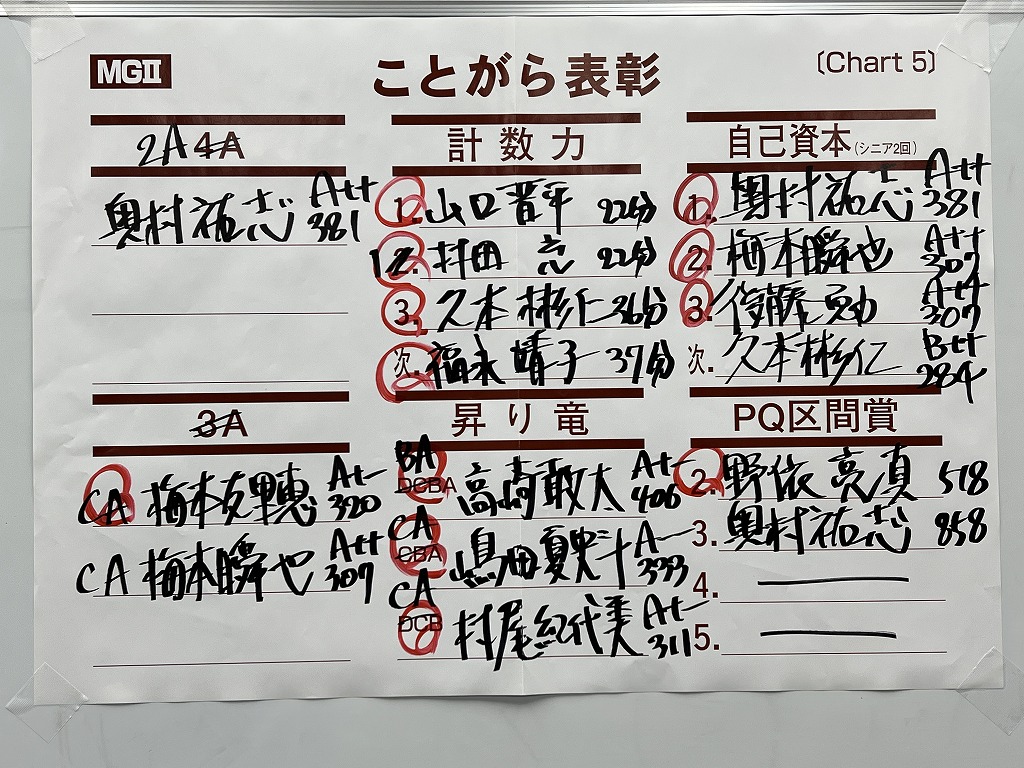 MGII
ことがら表彰
〔Chart 5〕
2A 4A
奥村祐志 A++ 381
計数力
1. 山口晋平 22分
1 2. 村田亮 22分
3. 久本彬仁 36分
次. 福永靖子 37分
自己資本(シニア2回)
1. 奥村祐志 A++ 381
2. 梅本瞬也 A++ 307
3. 後藤勇 A++ 307
次. 久本彬仁 B++ 284
3A
CA 梅本友里恵 A+- 320
CA 梅本瞬也 A++ 307
昇り竜
BA DCBA 高崎敢太 A+- 406
CA CBA 嶋田夏 A-- 333
CA DCB 村尾紀代美 A+- 311
PQ区間賞
2. 野依亮真 518
3. 奥村祐志 858
4.
5.